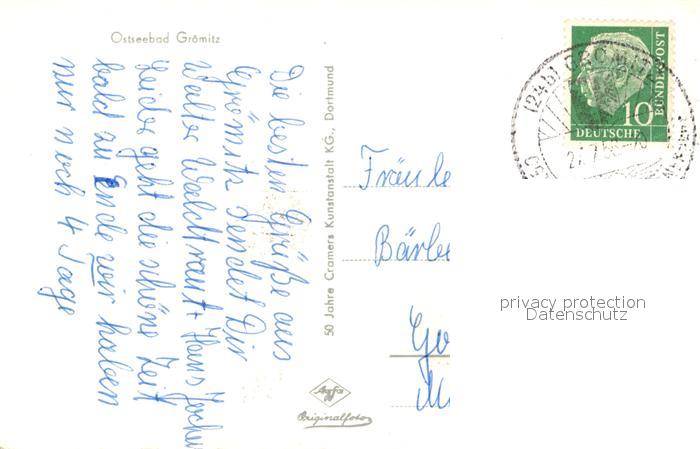 Ostseebad Grömitz
Die besten Grüße aus
Grömitz sendet Dir
Walter Waldtraut + Hans Jochen
Leider geht die schöne Zeit
bald zu Ende wir haben
nur noch 4 Tage
50 Jahre Cramers Kunstanstalt KG., Dortmund
Agfa
Originalfoto
Fräule
Bärbe
(24b) GRÖMITZ
10
DEUTSCHE
BUNDESPOST
privacy protection
Datenschutz